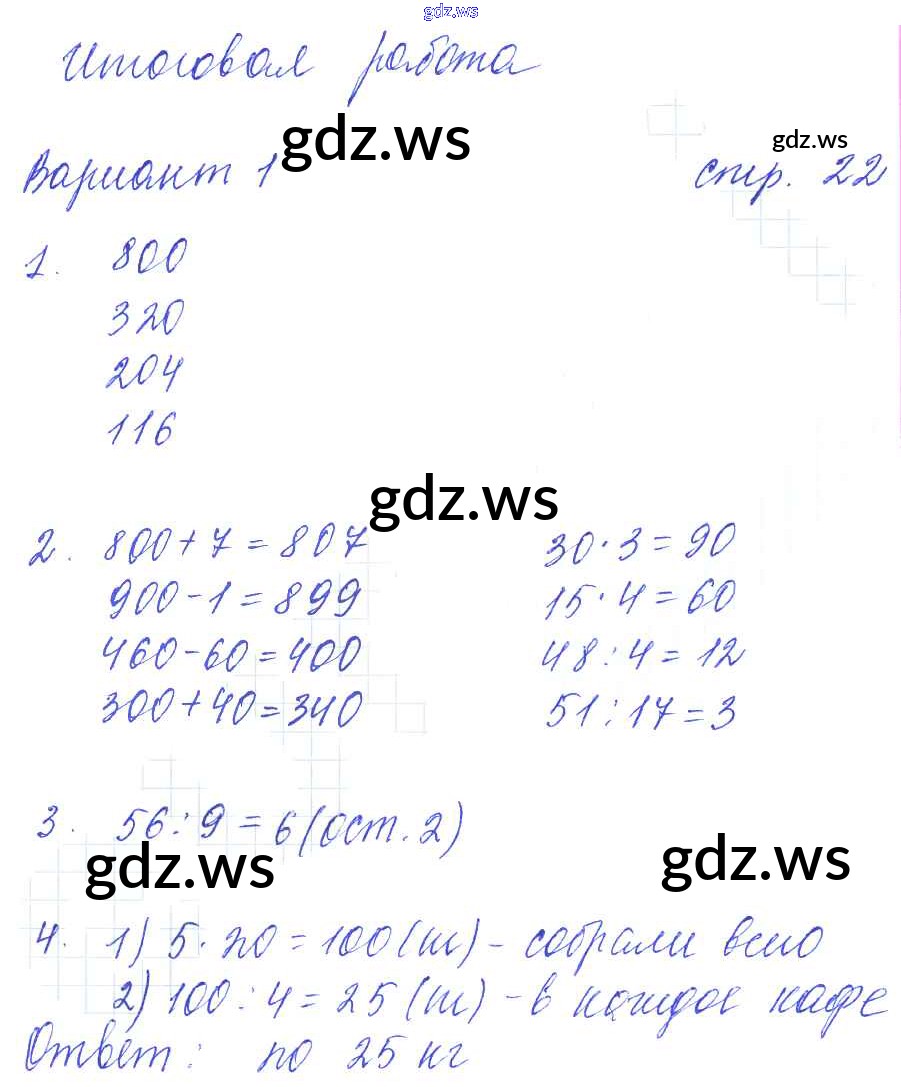 gdz.ws
Итоговая работа
gdz.ws
gdz.ws
Вариант 1 стр. 22
1. 800
320
204
116
gdz.ws
2. 800+7=807 30·3=90
900-1=899 15·4=60
460-60=400 48:4=12
300+40=340 51:17=3
3. 56:9=6(ост.2)
gdz.ws gdz.ws
4. 1) 5·20=100(ш) - собрали всего
2) 100:4=25(ш) - в каждое кафе
Ответ: по 25 кг